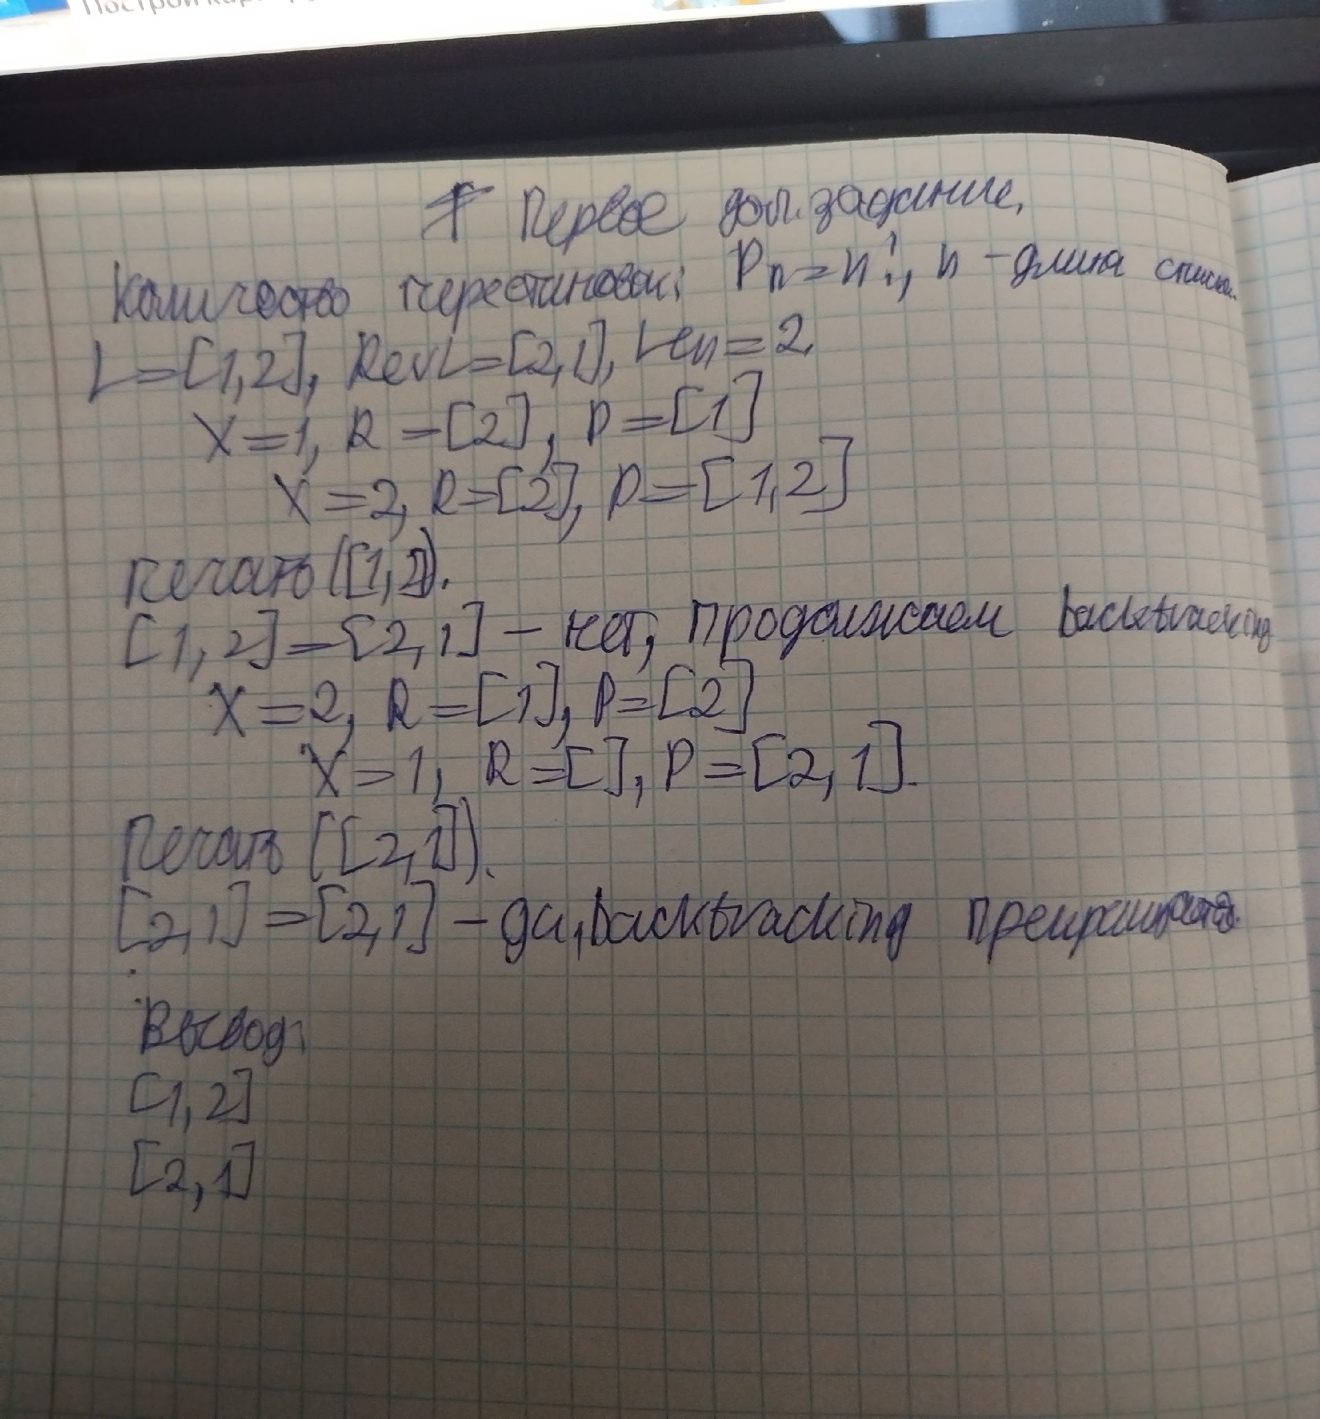 Построй
Первое доп. задание.
Количество перестановок: Pn = n!, n - длина списка.
L=[1,2], RevL=[2,1], Len=2.
X=1, R=[2], P=[1]
X=2, R=[2], P=[1,2]
Печать([1,2]).
[1,2]=[2,1] - нет, продолжаем backtracking
X=2, R=[1], P=[2]
X=1, R=[], P=[2,1].
Печать([2,1]).
[2,1]=[2,1] - да, backtracking прекращается.
Вывод:
[1,2]
[2,1]